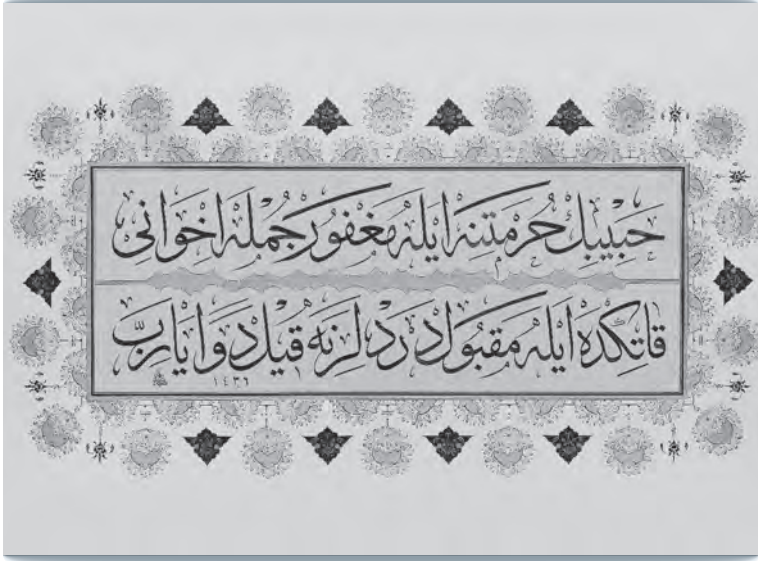 حَبيبِكْ حُرمَتِنَه اَيلَه مَغفُور جُملَه اَخوَانِى
قاتِكدَه اَيلَه مَقبُول دَردلَرنَه قِيل دَوَا يَارَبّ
١٤٣٦